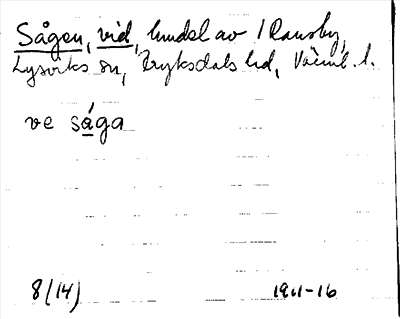 Sågen, vid, hmdel av 1 Ransby,
Lysviks sn, Fryksdals hd, Värml. l.
ve såga
8 (14)
1911-16